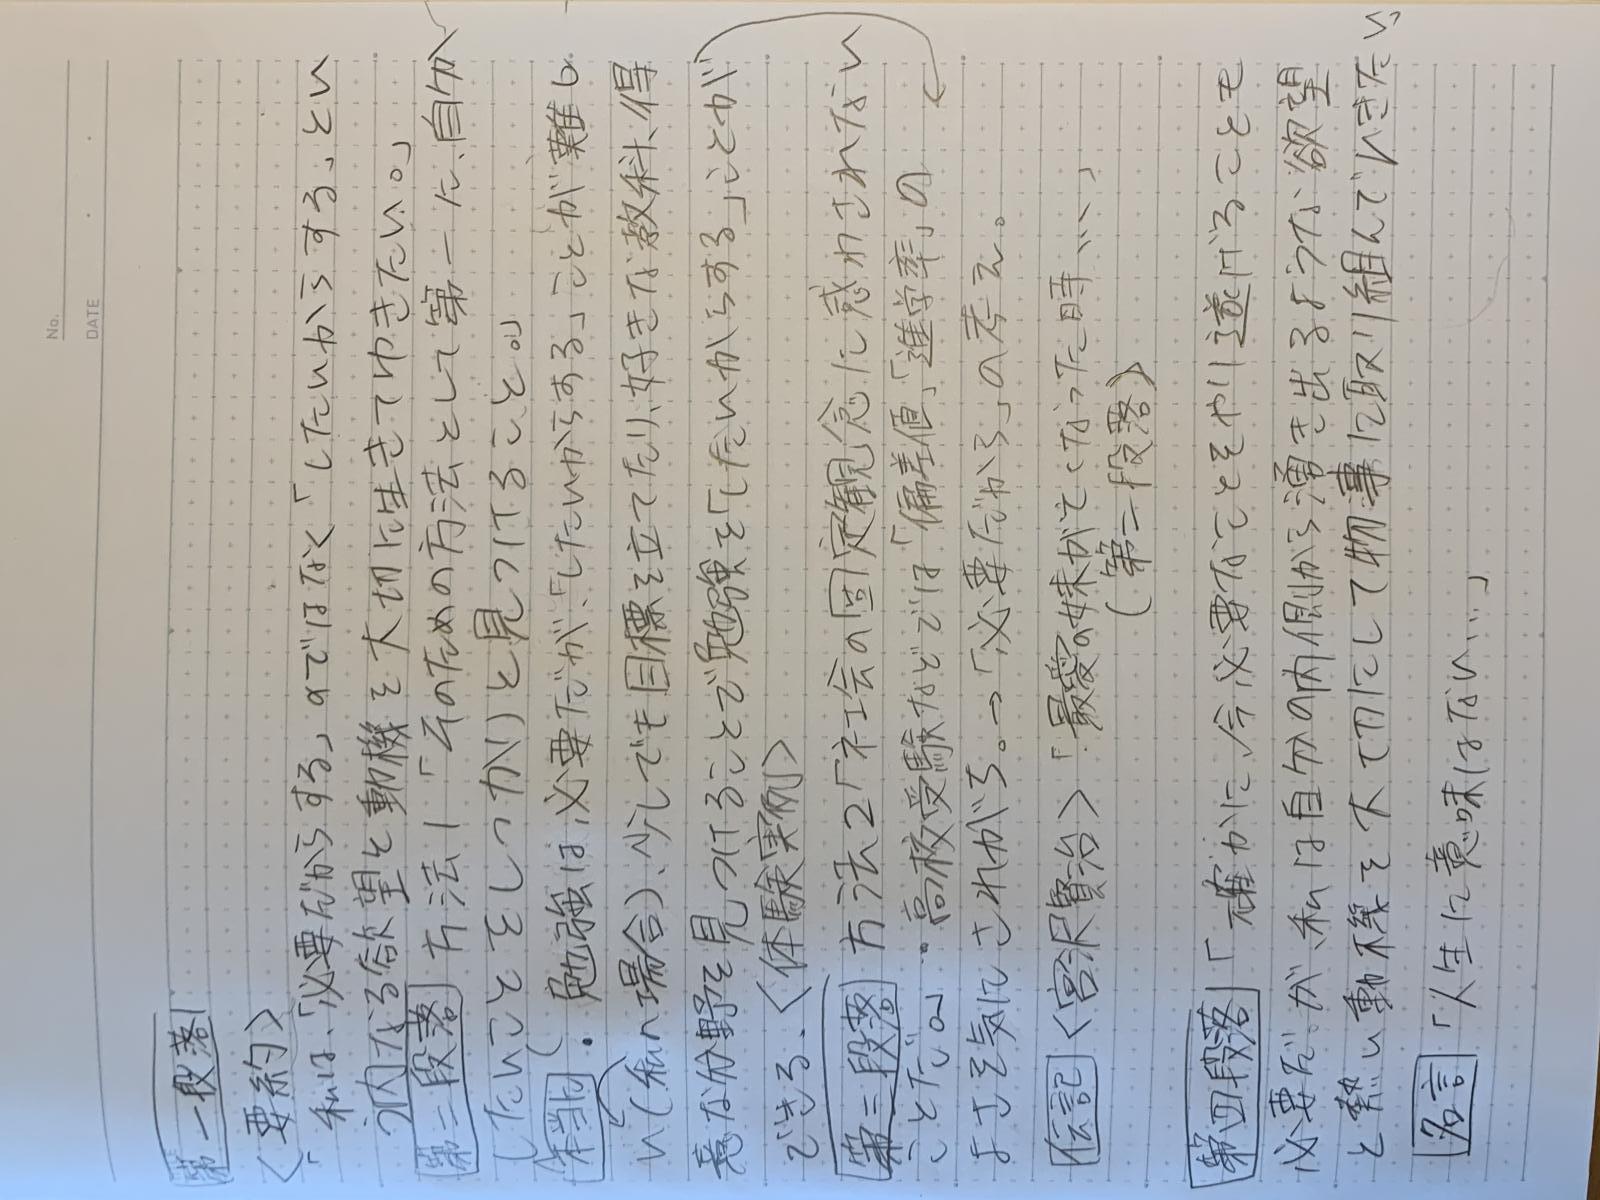 No.
DATE
第一段落
〈要約〉
「私は、「必要だからする」のではなく「したいからする」とい
う内なる欲望と動機を大切に生きてゆきたい。」
第二段落 方法1「そのための方法として第一に、自分が
したいことをしっかりと見つけること。」
・勉強は必要だが、「したいからする」ことが難し
い(私の場合)、少しでも目標を立てたり、好きな教科、得
意な分野を見つけることで勉強を「したいからする」ことが
できる、〈体験実例〉
第三段落 方法2「社会の固定観念に惑わされない
ことだ。」・高校受験などでは「偏差値」「進学率」の
よさを気にされがち。→「必要だから」の考え。
伝記〈宮沢賢治〉「最愛の妹が亡くなった時、…」
(第二段落)
第四段落「確かに、今必要なことをやり遂げることも
必要だ。が、私は自分の内側から湧き出るような欲望
と熱い動機を大切にして物事に取り組んでいきたい
名言「人生に意味はない…」